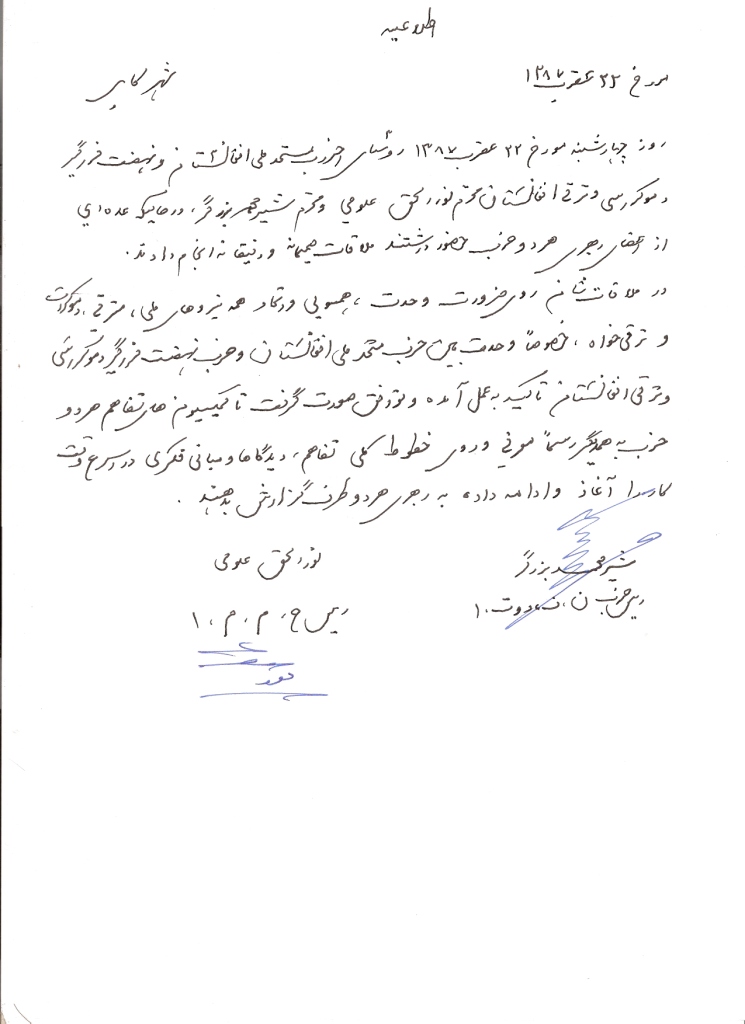 اطلاعیه
مورخ ۲۲ عقرب ۱۳۸۷
شهر کابل
روز چهارشنبه مورخ ۲۲ عقرب ۱۳۸۷ روسای احزاب متحد ملی افغانستان و نهضت فراگیر
دموکراسی و ترقی افغانستان محترم نورالحق علومی و محترم شیرمحمد بزرگر، درحالیکه عده ای
از اعضای رهبری هر دو حزب حضور داشتند ملاقات صمیمانه و رفیقانه انجام دادند.
در ملاقات شان روی ضرورت وحدت، همسویی و اتحاد همه نیروهای ملی، مترقی، دموکرات
و ترقی خواه، خصوصاً وحدت بین حزب متحد ملی افغانستان و حزب نهضت فراگیر دموکراسی
و ترقی افغانستان تاکید به عمل آمده و توافق صورت گرفت تا کمیسیون های تفاهم هر دو
حزب به همدیگر رسماً معرفی و روی خطوط کلی تفاهم، دیدگاها و مبانی فکری در اسرع وقت
کار را آغاز و ادامه داده به رهبری هر دو طرف گزارش بدهند.
شیرمحمد بزرگر
رییس حزب ن. ف. د. و. ت. ا
نورالحق علومی
رییس ح. م. م. ا